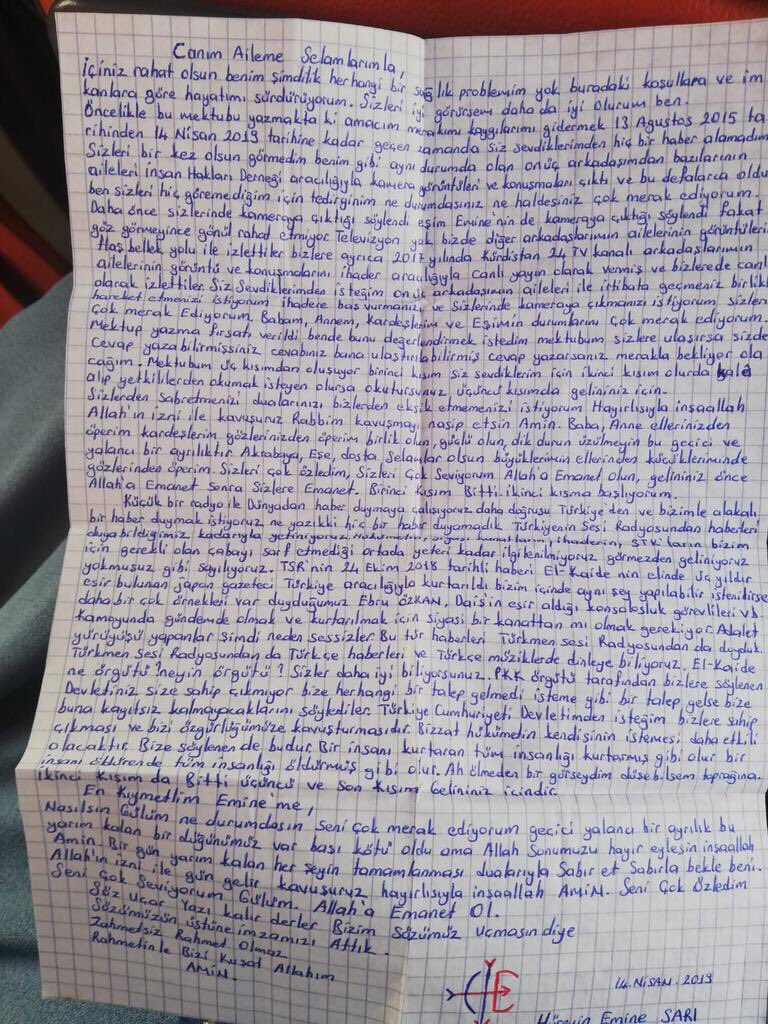 Canım Aileme Selamlarımla,
İçiniz rahat olsun benim şimdilik herhangi bir sağlık problemim yok buradaki koşullara ve im
kanlara göre hayatımı sürdürüyorum. Sizleri iyi görürsem daha da iyi olurum ben.
Öncelikle bu mektubu yazmakta ki amacım merakımı kaygılarımı gidermek 13 Ağustos 2015 ta
rihinden 14 Nisan 2019 tarihine kadar geçen zamanda siz sevdiklerimden hiç bir haber alamadım
Sizleri bir kez olsun görmedim benim gibi aynı durumda olan onüç arkadaşımdan bazılarının
aileleri insan Hakları Derneği aracılığıyla kamera görüntüleri ve konuşmaları çıktı ve bu defalarca oldu
ben sizleri hiç göremediğim için tedirginim ne durumdasınız ne haldesiniz çok merak ediyorum.
Daha önce sizlerinde kameraya çıktığı söylendi eşim Emine'nin de kameraya çıktığı söylendi fakat
göz görmeyince gönül rahat etmiyor. Televizyon yok bizde diğer arkadaşlarımın ailelerinin görüntüleri
Flaş bellek yolu ile izlettiler bizlere ayrıca 2017 yılında Kürdistan 24 TV kanalı arkadaşlarımın
ailelerinin görüntü ve konuşmalarını ihader aracılığıyla canlı yayın olarak vermiş ve bizlerede canlı
olarak izlettiler. Siz Sevdiklerimden isteğim onüç arkadaşımın aileleri ile irtibata geçmeniz birlikte
hareket etmenizi istiyorum ihadere baş vurmanızı ve Sizlerinde kameraya çıkmanızı istiyorum sizleri
Çok merak Ediyorum. Babam, Annem, kardeşlerim ve Eşimin durumlarını Çok merak ediyorum.
Mektup yazma fırsatı verildi bende bunu değerlendirmek istedim mektubum sizlere ulaşırsa sizde
Cevap yazabilirmişsiniz cevabınız bana ulaştırılabilirmiş cevap yazarsanız merakla bekliyor ola
cağım. Mektubum üç kısımdan oluşuyor birinci kısım siz sevdiklerim için ikinci kısım olurda kale
alıp yetkililerden okumak isteyen olursa okutursunuz üçüncü kısımda gelininiz için.
Sizlerden Sabretmenizi dualarınızı bizlerden eksik etmemenizi istiyorum Hayırlısıyla inşaallah
Allah'ın izni ile kavuşuruz Rabbim kavuşmayı nasip etsin Amin. Baba, Anne ellerinizden
öperim kardeşlerim gözlerinizden öperim birlik olun, güçlü olun, dik durun üzülmeyin bu geçici ve
yalancı bir ayrılıktır. Akrabaya, Eşe, dosta Selamlar olsun büyüklerimin ellerinden küçükleriminde
gözlerinden öperim. Sizleri çok özledim, Sizleri Çok Seviyorum Allah'a Emanet olun, gelininiz önce
Allah'a Emanet Sonra Sizlere Emanet. Birinci Kısım Bitti ikinci kısıma başlıyorum.
Küçük bir radyo ile Dünyadan haber duymaya çalışıyoruz daha doğrusu Türkiye'den ve bizimle alakalı
bir haber duymak istiyoruz ne yazıkki hiç bir haber duyamadık Türkiyenin Sesi Radyosundan haberleri
duyabildiğimiz kadarıyla yetiniyoruz. ihaderin, STK'ların bizim
için gerekli olan çabayı sarf etmediği ortada yeteri kadar ilgilenilmiyoruz görmezden geliniyoruz
yokmuşuz gibi sayılıyoruz. TSR'nin 24 Ekim 2018 tarihli haberi El-Kaide'nin elinde üç yıldır
esir bulunan japan gazeteci Türkiye aracılığıyla kurtarıldı bizim içinde aynı şey yapılabilir istenilirse
daha bir çok örnekleri var duyduğumuz Ebru ÖZKAN, Daiş'in esir aldığı konsolosluk görevlileri vb.
Kamoyunda gündemde olmak ve kurtarılmak için siyasi bir kanattan mı olmak gerekiyor. Adalet
yürüyüşü yapanlar Şimdi neden sessizler Bu tür haberleri Türkmen Sesi Radyosundan da duyduk.
Türkmen Sesi Radyosundan da Türkçe haberleri ve Türkçe müziklerde dinleye biliyoruz. El-Kaide
ne örgütü? neyin örgütü? Sizler daha iyi biliyorsunuz. PKK örgütü tarafından bizlere söylenen
Devletiniz size sahip çıkmıyor bize herhangi bir talep gelmedi isteme gibi bir talep gelse bize
buna kayıtsız kalmayacaklarını söylediler. Türkiye Cumhuriyeti Devletimden isteğim bizlere sahip
çıkması ve bizi özgürlüğümüze kavuşturmasıdır. Bizzat hükümetin kendisinin istemesi daha etkili
olacaktır. Bize söylenen de budur Bir insanı kurtaran tüm insanlığı kurtarmış gibi olur bir
insanı öldürende tüm insanlığı öldürmüş gibi olur. Ah ölmeden bir görseydim düşebilsem toprağına.
İkinci Kısım da Bitti üçüncü ve son kısım Gelininiz içindir.
En Kıymetlim Emine'me,
Nasılsın Gülüm ne durumdasın seni çok merak ediyorum geçici yalancı bir ayrılık bu
yarım kalan bir düğünümüz var başı kötü oldu ama Allah Sonumuzu hayır eylesin inşaallah
Amin. Bir gün yarım kalan her şeyin tamamlanması dualarıyla Sabır et Sabırla bekle beni.
Allah'ın izni ile gün gelir kavuşuruz hayırlısıyla inşaallah AMiN. Seni Çok Özledim
Seni Çok Seviyorum Gülüm. Allah'a Emanet Ol.
Söz Uçar Yazı kalır derler Bizim Sözümüz Uçmasın diye
Sözümüzün üstüne imzamızı Attık.
Zahmetsiz Rahmet Olmaz
Rahmetinle Bizi Kuşat Allahım
AMiN.
14.NiSAN.2019
Hüseyin Emine SARI